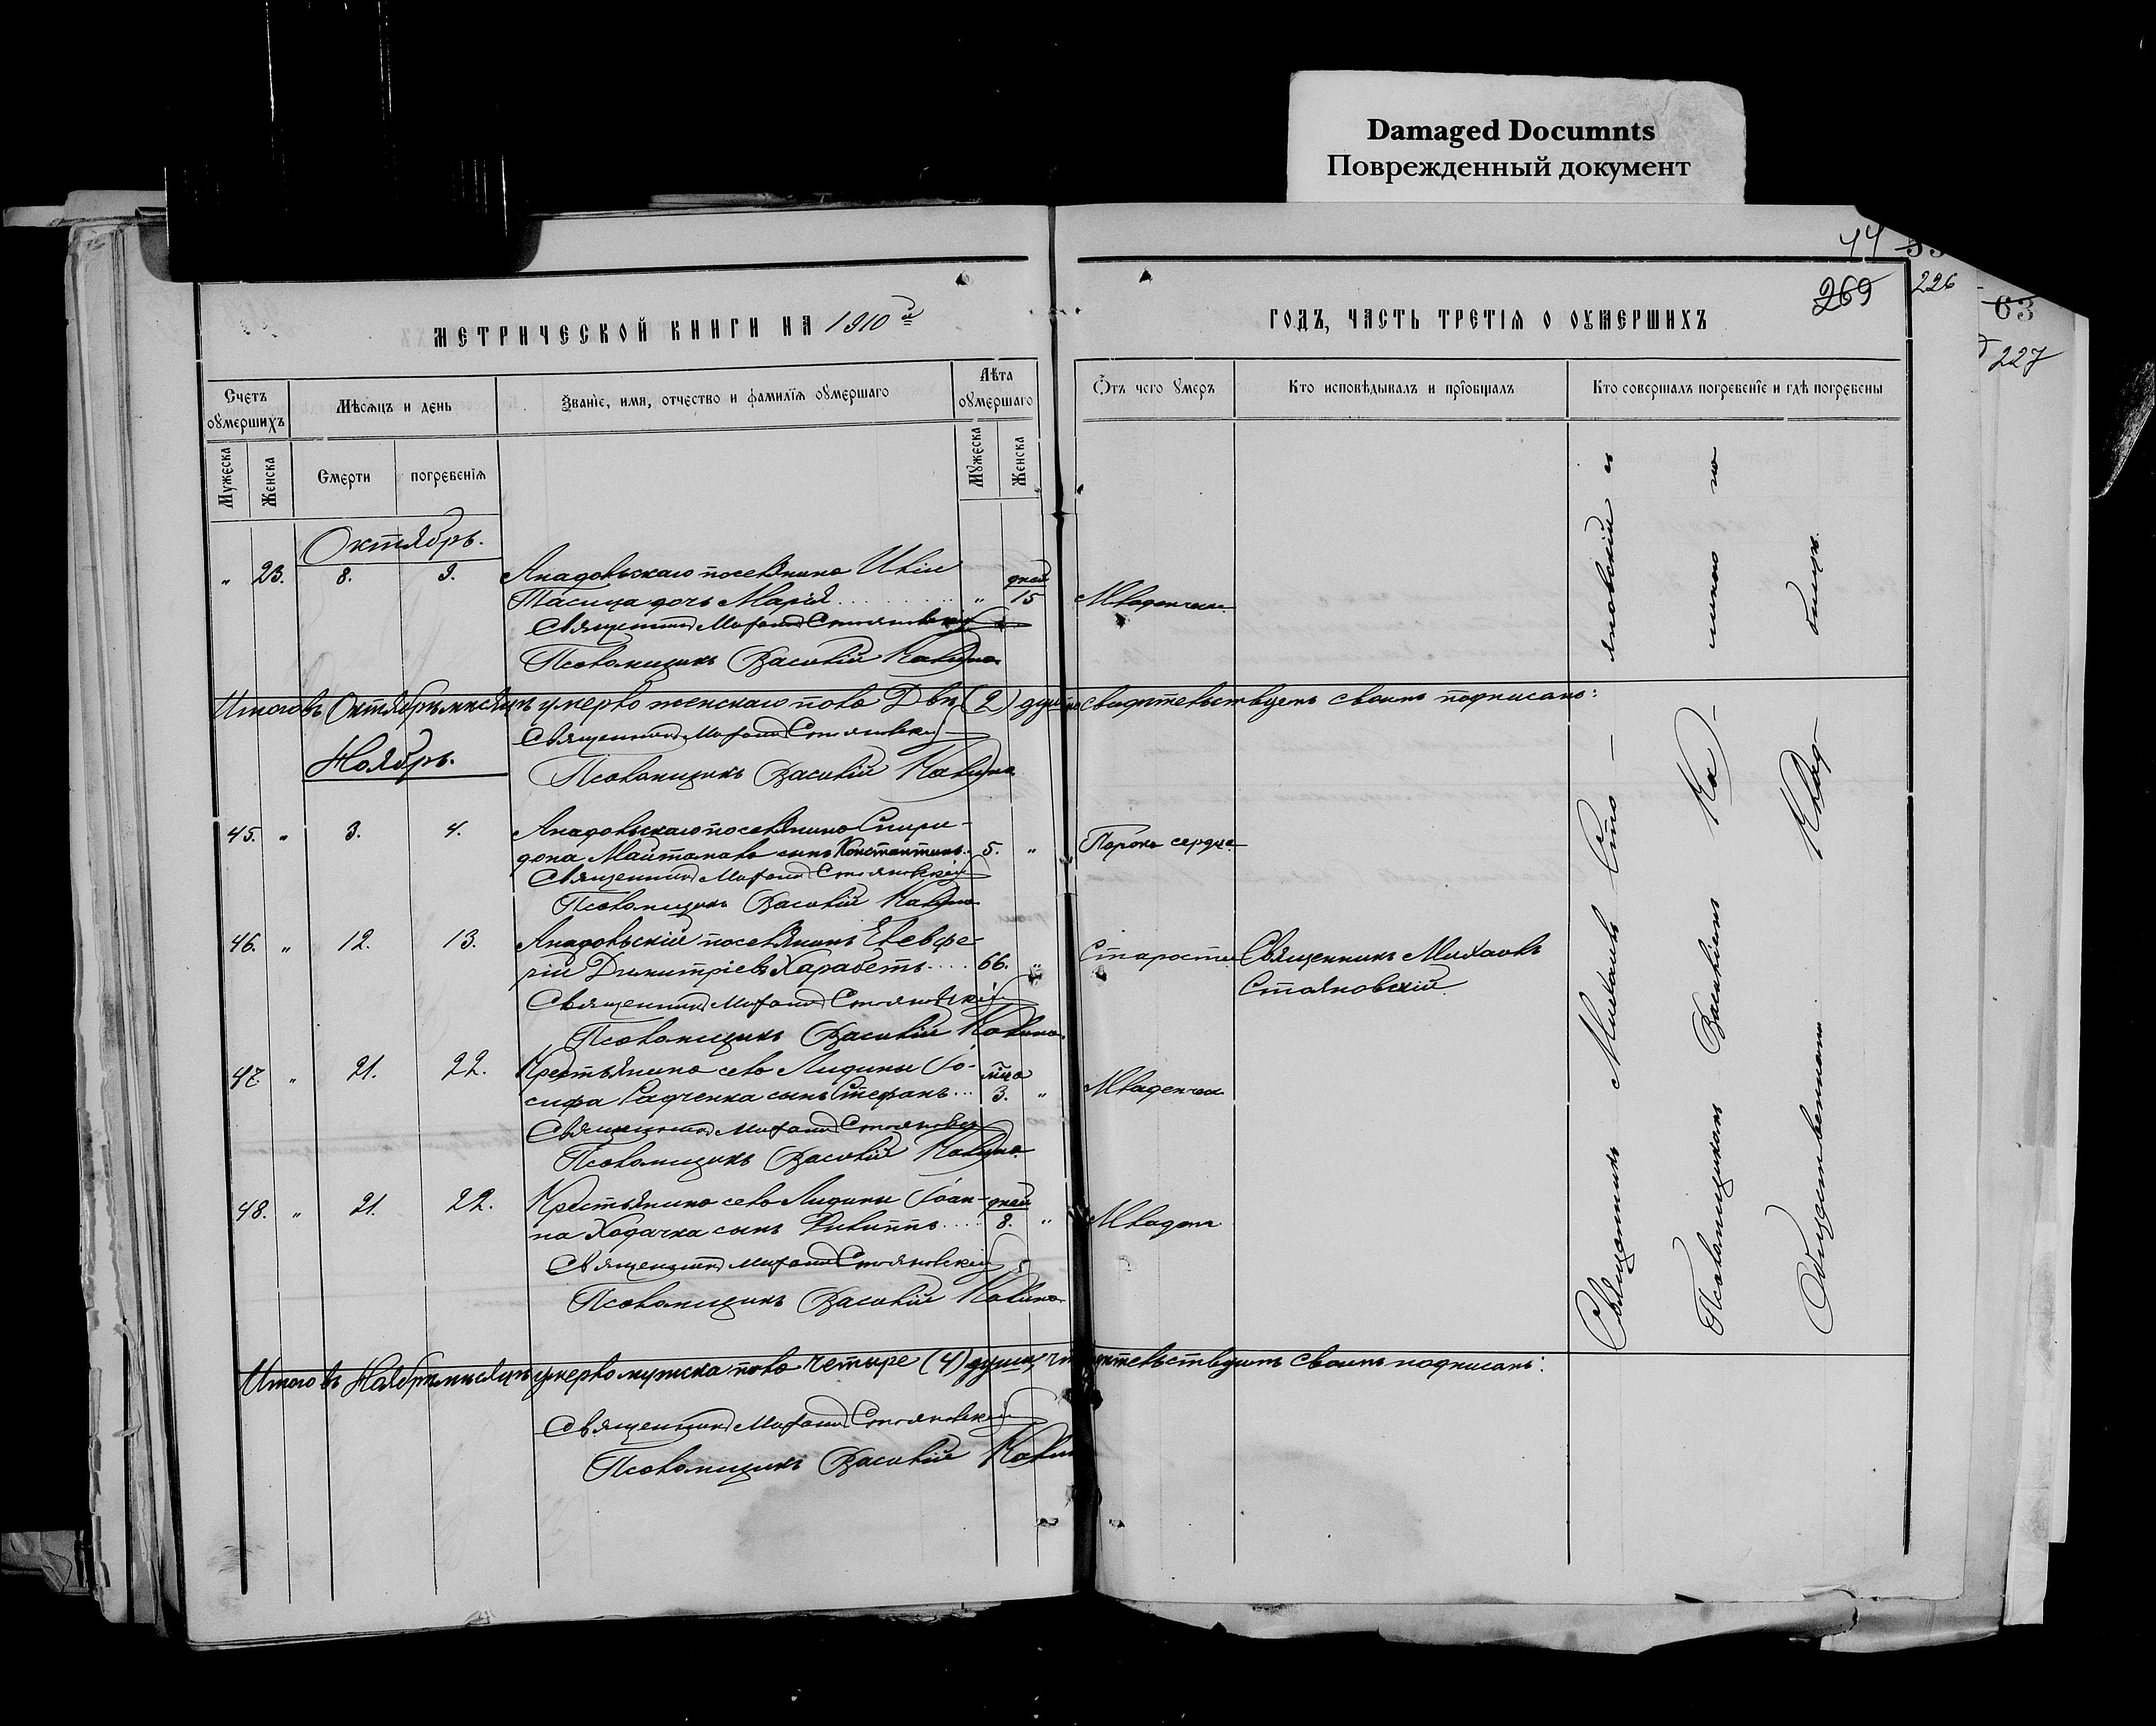 Damaged Documnts
Поврежденный документ
44
269
226
63
227
МЕТРИЧЕСКОЙ КНИГИ НА 1910 й
ГОДЪ, ЧАСТЬ ТРЕТІЯ О ОУМЕРШИХЪ
Счетъ оумершихъ
Мѣсяцъ и день
Званіе, имя, отчество и фамилія оумершаго
Лѣта оумершаго
Отъ чего умеръ
Кто исповѣдывалъ и пріобщалъ
Кто совершалъ погребеніе и гдѣ погребены
Мужеска
Женска
Смерти
погребенія
Мужеска
Женска
Октябрь.
" 23. 8. 9. Анадольскаго поселянина Иліи дней
Тасица дочь Марія " 15 Младенческ.
Священникъ Михаилъ Стояновскій
Псаломщикъ Василій
Итого въ Октябрѣ мѣсяцѣ умерло женскаго пола Двѣ (2) души свидѣтельствуемъ своимъ подписомъ:
Священникъ Михаилъ Стояновскій
Ноябрь.
Псаломщикъ Василій
45. " 3. 4. Анадольскаго поселянина Спири-
дона Майтамала сынъ Константинъ. 5. " Порокъ сердца
Священникъ Михаилъ Стояновскій
Псаломщикъ Василій
46. " 12. 13. Анадольскій поселянинъ Елевфе-
рій Димитріевъ Харабетъ.... 66. " Старости Священникъ Михаилъ
Стояновскій
Священникъ Михаилъ Стояновскій
Псаломщикъ Василій
47. " 21. 22. Крестьянина села Лидины Іо- мѣс.
сифа Радченка сынъ Стефанъ... 3. " Младенческ.
Священникъ Михаилъ Стояновскій
Псаломщикъ Василій
48. " 21. 22. Крестьянина села Лидины Іоан- дней
на Ходачка сынъ Филиппъ.... 8. " Младенч
Священникъ Михаилъ Стояновскій
Псаломщикъ Василій
Итого въ Ноябрѣ мѣсяцѣ умерло мужска пола четыре (4) души, свидѣтельствуемъ своимъ подписомъ:
Священникъ Михаилъ Стояновскій
Псаломщикъ Василій
Священникъ Михаилъ Сто-
яновскій и
Псаломщикомъ Василіемъ Ка-
линою на
Общественномъ Клад-
бищѣ.